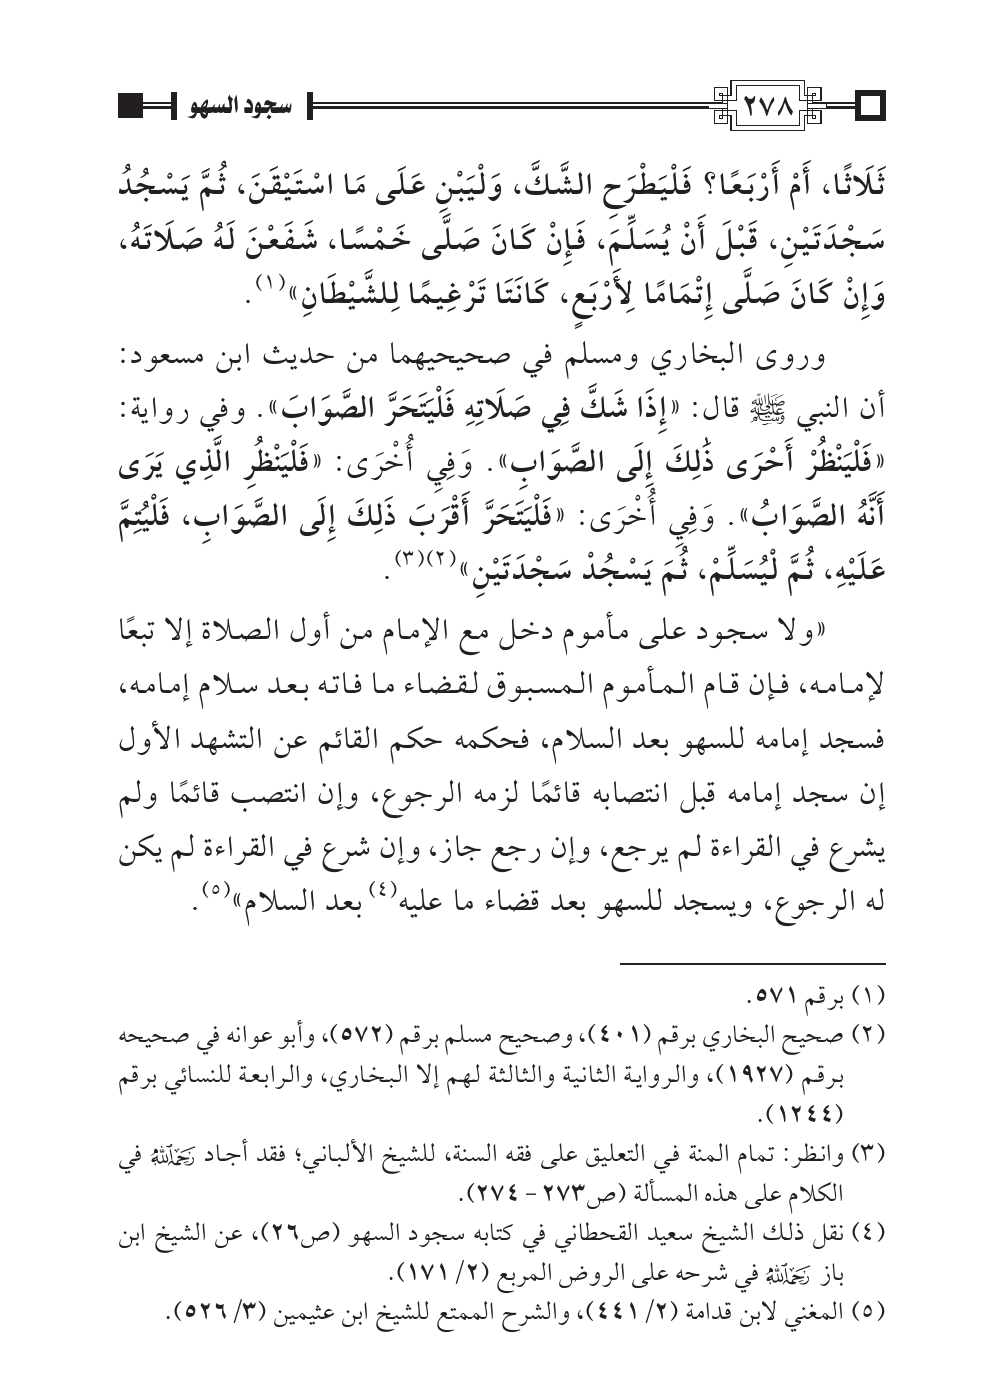 ٢٧٨ سجود السهو
ثَلَاثًا، أَمْ أَرْبَعًا؟ فَلْيَطْرَحِ الشَّكَّ، وَلْيَبْنِ عَلَى مَا اسْتَيْقَنَ، ثُمَّ يَسْجُدُ
سَجْدَتَيْنِ، قَبْلَ أَنْ يُسَلِّمَ، فَإِنْ كَانَ صَلَّى خَمْسًا، شَفَعْنَ لَهُ صَلَاتَهُ،
وَإِنْ كَانَ صَلَّى إِتْمَامًا لِأَرْبَعٍ، كَانَتَا تَرْغِيمًا لِلشَّيْطَانِ»(١).
وروى البخاري ومسلم في صحيحيهما من حديث ابن مسعود:
أن النبي ﷺ قال: «إِذَا شَكَّ فِي صَلَاتِهِ فَلْيَتَحَرَّ الصَّوَابَ». وفي رواية:
«فَلْيَنْظُرْ أَحْرَى ذَٰلِكَ إِلَى الصَّوَابِ». وَفِي أُخْرَى: «فَلْيَنْظُرِ الَّذِي يَرَى
أَنَّهُ الصَّوَابُ». وَفِي أُخْرَى: «فَلْيَتَحَرَّ أَقْرَبَ ذَلِكَ إِلَى الصَّوَابِ، فَلْيُتِمَّ
عَلَيْهِ، ثُمَّ لْيُسَلِّمْ، ثُمَ يَسْجُدْ سَجْدَتَيْنِ»(٢)(٣).
«ولا سجود على مأموم دخل مع الإمام من أول الصلاة إلا تبعًا
لإمامه، فإن قام المأموم المسبوق لقضاء ما فاته بعد سلام إمامه،
فسجد إمامه للسهو بعد السلام، فحكمه حكم القائم عن التشهد الأول
إن سجد إمامه قبل انتصابه قائمًا لزمه الرجوع، وإن انتصب قائمًا ولم
يشرع في القراءة لم يرجع، وإن رجع جاز، وإن شرع في القراءة لم يكن
له الرجوع، ويسجد للسهو بعد قضاء ما عليه(٤) بعد السلام»(٥).
(١) برقم ٥٧١.
(٢) صحيح البخاري برقم (٤٠١)، وصحيح مسلم برقم (٥٧٢)، وأبو عوانه في صحيحه
برقم (١٩٢٧)، والرواية الثانية والثالثة لهم إلا البخاري، والرابعة للنسائي برقم
(١٢٤٤).
(٣) وانظر: تمام المنة في التعليق على فقه السنة، للشيخ الألباني؛ فقد أجاد رَحِمَهُ اللهُ في
الكلام على هذه المسألة (ص٢٧٣ - ٢٧٤).
(٤) نقل ذلك الشيخ سعيد القحطاني في كتابه سجود السهو (ص٢٦)، عن الشيخ ابن
باز رَحِمَهُ اللهُ في شرحه على الروض المربع (٢/ ١٧١).
(٥) المغني لابن قدامة (٢/ ٤٤١)، والشرح الممتع للشيخ ابن عثيمين (٣/ ٥٢٦).